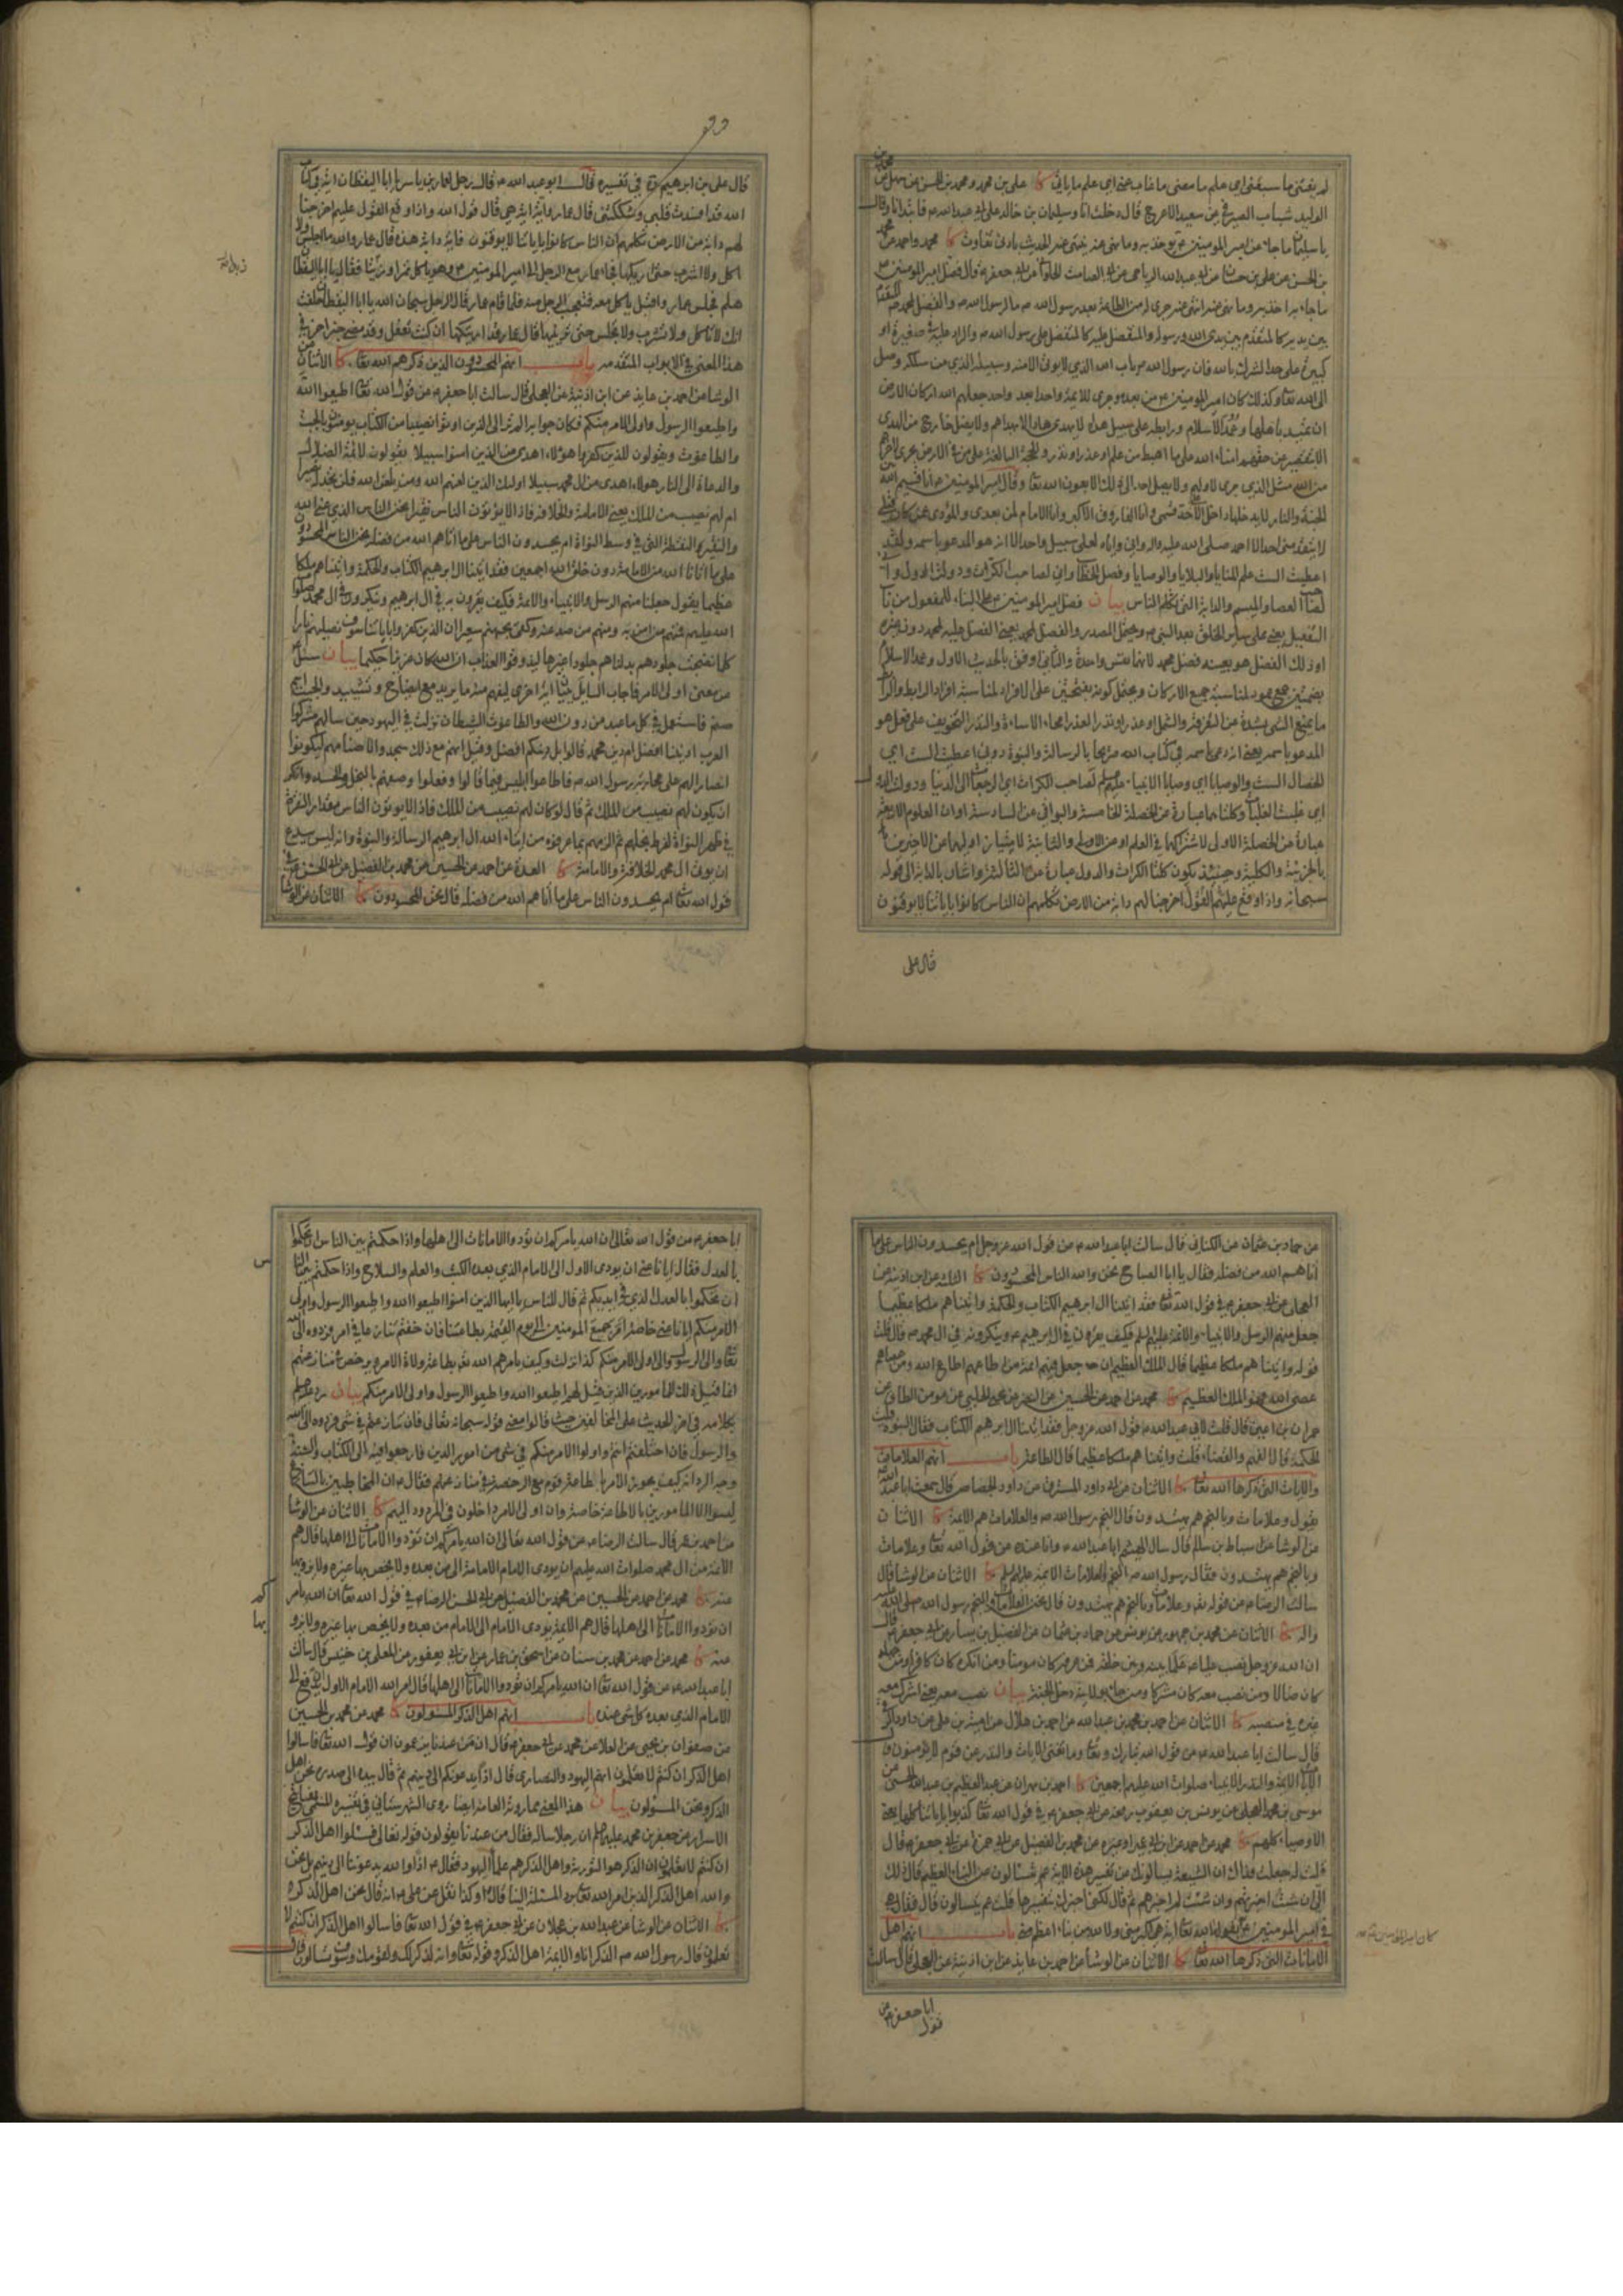 لم يفتنى ما سبقنى اى علم ما مضى ما غاب عنى اى علم ما ياتى كا على بن محمد ومحمد بن الحسن عن سهل عن محمد بن
الوليد شباب الصيرفى عن سعيد الاعرج قال دخلت انا وسليمان بن خالد على ابى عبد الله ع فابتدانا وقال
يا سليمان ما جاء عن امير المومنين ع يوخذ به وما نهى عنه ينتهى عنه الحديث بادنى تفاوت كا محمد واحمد عن محمد
بن الحسن عن على بن حسان عن ابى عبد الله الرياحى عن ابى الصامت الحلوانى عن ابى جعفر ع قال فضل امير المومنين ع
ما جاء به اخذ به وما نهى عنه انتهى عنه جرى له من الطاعة بعد رسول الله ص ما لرسول الله ص والفضل لمحمد ص المتقدم
بين يديه كالمتقدم بين يدى الله ورسوله والمتفضل عليه كالمتفضل على رسول الله ص والراد عليه فى صغيرة او
كبيرة على حد الشرك بالله فان رسول الله ص باب الله الذي لا يوتى الا منه وسبيله الذي من سلكه وصل
الى الله تعا وكذلك كان امير المومنين ع من بعده وجرى للايمة واحدا بعد واحد جعلهم الله اركان الارض
ان تميد باهلها وعمد الاسلام ورابطه على سبيل هداه لا يهتدى هاد الا بهداهم ولا يضل خارج من الهدى
الا بتقصير عن حقهم امناء الله على ما اهبط من علم او عذر او نذر والحجة البالغة على من فى الارض يجرى لاخرهم
من الله مثل الذي جرى لاولهم ولا يصل احد الى ذلك الا بعون الله تعا وقال امير المومنين ع انا قسيم الله بين
الجنة والنار لا يدخلها داخل الا على حد قسمى وانا الفاروق الاكبر وانا الامام لمن بعدى والمؤدى عمن كان قبلى
لا يتقدمنى احد الا احمد صلى الله عليه واله وانى واياه لعلى سبيل واحد الا انه هو المدعو باسمه ولقد
اعطيت الست علم المنايا والبلايا والوصايا وفصل الخطاب وانى لصاحب الكرات ودولة الدول وانى
لصاحب العصا والميسم والدابة التى تكلم الناس بيان فضل امير المومنين ع على البناء للمفعول من باب
التفعيل يعنى على ساير الخلق بعد النبى ص ويحتمل المصدر والفضل لمحمد يعنى الفضل عليه لمحمد دون غيره
او ذلك الفضل هو بعينه فضل محمد لانهما نفس واحدة والثانى اوفق بالحديث الاول وعمد الاسلام
بضمتين جمع عمود لمناسبة جميع الاركان ويحتمل كونه بفتحتين على الافراد لمناسبة افراد الرابط والرابط
ما يمنع الشى بشدة عن التفرقة والشمل او عذر او نذر العذر امحاء الاساءة والنذر التخويف على فعل هو
المدعو باسمه يعنى انه دعى باسمه فى كتاب الله صريحا بالرسالة والنبوة دونى اعطيت الست اي
الخصال الست والوصايا اي وصايا الانبياء عليهم السلم لصاحب الكرات اي الرجعات الى الدنيا ودولة الدول
اي غلبة الغلبات وكلتاهما عبارة عن الخصلة الخامسة والبواقى عن السادسة او ان العلوم الاربعة
عبارة عن الخصلة الاولى لاشتراكها فى العلم او عن الاولى والثانية لامتياز اوليها عن الاخيرين
بالجزيئة والكلية وحينئذ يكون كلتا الكرات والدول عبارة عن الثالثة واشار بالدابة الى قوله
سبحانه واذا وقع عليهم القول اخرجنا لهم دابة من الارض تكلمهم ان الناس كانوا باياتنا لا يوقنون
قال على
قال على بن ابراهيم ره فى تفسيره قال ابو عبد الله ع قال رجل لعمار بن ياسر يا ابا اليقظان اية فى كتاب
الله قد افسدت قلبى وشككتنى قال عمار واية اية هى قال قول الله واذا وقع القول عليهم اخرجنا
لهم دابة من الارض تكلمهم ان الناس كانوا باياتنا لا يوقنون فاية دابة هذه قال عمار والله ما اجلس ولا
اكل ولا اشرب حتى اريكها فجاء عمار مع الرجل الى امير المومنين ع وهو ياكل تمرا وزبدا فقال يا ابا اليقظان
هلم فجلس عمار واقبل ياكل معه فتعجب الرجل منه فلما قام عمار قال الرجل سبحان الله يا ابا اليقظان حلفت
انك لا تاكل ولا تشرب ولا تجلس حتى ترينيها قال عمار قد اريتكها ان كنت تعقل وقد مضى خبر اخر فى
هذا المعنى فى الابواب المتقدمه باب انهم المحسودون الذين ذكرهم الله تعا كا الاثنان عن
الوشا عن احمد بن عايذ عن ابن اذينة عن العجلى قال سالت ابا جعفر ع عن قول الله تعا اطيعوا الله
واطيعوا الرسول واولى الامر منكم فكان جوابه الم تر الى الذين اوتوا نصيبا من الكتاب يومنون بالجبت
والطاغوت ويقولون للذين كفروا هؤلاء اهدى من الذين امنوا سبيلا يقولون لائمة الضلالة
والدعاة الى النار هولاء اهدى من ال محمد سبيلا اولئك الذين لعنهم الله ومن يلعن الله فلن تجد له نصيرا
ام لهم نصيب من الملك يعنى الامامة والخلافة فاذا لا يؤتون الناس نقيرا نحن الناس الذي عنى الله
والنقير النقطة التى فى وسط النواة ام يحسدون الناس على ما اتاهم الله من فضله نحن الناس المحسودون
على ما اتانا الله من الامامة دون خلق الله اجمعين فقد اتينا ال ابرهيم الكتاب والحكمة واتيناهم ملكا
عظيما يقول جعلنا منهم الرسل والانبياء والائمة فكيف يقرون به فى ال ابرهيم وينكرونه فى ال محمد صلوات
الله عليهم فمنهم من امن به ومنهم من صد عنه وكفى بجهنم سعيرا ان الذين كفروا باياتنا سوف نصليهم نارا
كلما نضجت جلودهم بدلناهم جلودا غيرها ليذوقوا العذاب ان الله كان عزيزا حكيما بيان سئل
عن معنى اولى الامر فاجاب السايل ببيان اية اخرى ليفهم منه ما يريد مع ايضاح وتشييد والجبت اسم
صنم فاستعمل فى كل ما عبد من دون الله والطاغوت الشيطان نزلت فى اليهود حين سالهم مشركوا
العرب اديننا افضل ام دين محمد قالوا بل دينكم افضل وقيل انهم مع ذلك سجدوا لاصنامهم ليكونوا
انصارا لهم على محاربة رسول الله ص فاطاعوا ابليس فيما قالوا وفعلوا وصفهم بالبخل والحسد وانكر
ان يكون لهم نصيب من الملك ثم قال لو كان لهم نصيب من الملك فاذا لا يوتون الناس مقدار النقرة
فى ظهر النواة لفرط بخلهم ثم الزمهم بما عرفوه من ايتاء الله ال ابرهيم الرسالة والنبوة وانه ليس ببدع
ان يوتى ال محمد الخلافة والامامة كا العدة عن احمد عن الحسين عن محمد بن الفضيل عن ابى الحسن ع فى
قول الله تعا ام يحسدون الناس على ما اتاهم الله من فضله قال نحن المحسودون كا الاثنان عن الوشا
عن حماد بن عثمان عن الكنانى قال سالت ابا عبد الله ع عن قول الله عز وجل ام يحسدون الناس على ما
اتاهم الله من فضله فقال يا ابا الصباح نحن والله الناس المحسودون كا الثلثة عن ابن اذينة عن
العجلى عن ابى جعفر ع فى قول الله تعا فقد اتينا ال ابرهيم الكتاب والحكمة واتيناهم ملكا عظيما
جعل منهم الرسل والانبياء والائمة عليهم السلم فكيف يقرون فى ال ابرهيم ع وينكرونه فى ال محمد ص قال قلت
قوله واتيناهم ملكا عظيما قال الملك العظيم ان جعل فيهم ائمة من اطاعهم اطاع الله ومن عصاهم
عصى الله فهو الملك العظيم كا محمد عن احمد عن الحسين عن النضر عن يحيى الحلبى عن مومن الطاق عن
حمران بن اعين قال قلت لابى عبد الله ع قول الله عز وجل فقد اتينا ال ابرهيم الكتاب فقال النبوة قلت
الحكمة قال الفهم والقضاء قلت واتيناهم ملكا عظيما قال الطاعة باب انهم العلامات
والايات التى ذكرها الله تعا كا الاثنان عن ابى داود المسترق عن داود الجصاص قال سمعت ابا عبد الله ع
يقول وعلامات وبالنجم هم يهتدون قال النجم رسول الله ص والعلامات هم الايمة ع كا الاثنان
عن الوشا عن اسباط بن سالم قال سال الهيثم ابا عبد الله ع وانا عنده عن قول الله تعا وعلامات
وبالنجم هم يهتدون فقال رسول الله ص النجم والعلامات الايمة عليهم السلم كا الاثنان عن الوشا قال
سالت الرضا ع عن قوله تع وعلامات وبالنجم هم يهتدون قال نحن العلامات والنجم رسول الله صلى الله عليه
واله كا الاثنان عن محمد بن جمهور عن يونس عن حماد بن عثمان عن الفضيل بن يسار عن ابى جعفر ع قال
ان الله عز وجل نصب عليا ع علما بينه وبين خلقه فمن عرفه كان مومنا ومن انكره كان كافرا ومن جهله
كان ضالا ومن نصب معه كان مشركا ومن جاء بولايته دخل الجنة بيان نصب معه يعنى اشرك معه
غيره فى منصبه كا الاثنان عن احمد بن محمد بن عبد الله عن احمد بن هلال عن امية بن على عن داود الرقى
قال سالت ابا عبد الله ع عن قول الله تبارك وتعا وما تغنى الايات والنذر عن قوم لا يومنون قال
الايات الايمة والنذر الانبياء صلوات الله عليهم اجمعين كا احمد بن مهران عن عبد العظيم بن عبد الله الحسنى عن
موسى بن محمد العجلى عن يونس بن يعقوب رفعه عن ابى جعفر ع فى قول الله تعا كذبوا باياتنا كلها يعنى
الاوصياء كلهم كا محمد عن احمد عن ابن ابى عمير او غيره عن محمد بن الفضيل عن ابى حمزة عن ابى جعفر ع قال
قلت له جعلت فداك ان الشيعة يسالونك عن تفسير هذه الاية عم يتسالون عن النباء العظيم قال ذلك
الى ان شئت اخبرتهم وان شئت لم اخبرهم ثم قال لكنى اخبرك بتفسيرها قلت عم يتسالون قال فقال هى
فى امير المومنين ع ما لله تعا اية هى اكبر منى ولا لله من نباء اعظم منى باب انهم اهل
الامانات التى ذكرها الله تعا كا الاثنان عن الوشا عن احمد بن عايذ عن ابن اذينة عن العجلى قال سالت
ابا جعفر ع عن
قول
ابا جعفر ع عن قول الله تعالى ان الله يامركم ان تؤدوا الامانات الى اهلها واذا حكمتم بين الناس ان تحكموا
بالعدل فقال ايانا عنى ان يودى الاول الى الامام الذي بعده الكتب والعلم والسلاح واذا حكمتم بين الناس
ان تحكموا بالعدل الذي فى ايديكم ثم قال للناس يا ايها الذين امنوا اطيعوا الله واطيعوا الرسول واولى
الامر منكم ايانا عنى خاصة امر جميع المومنين الى يوم القيمة بطاعتنا فان خفتم تنازعا فى امر فردوه الى الله
تعا والى الرسول والى اولى الامر منكم كذا نزلت وكيف يامرهم الله تع بطاعة ولاة الامر ويرخص فى منازعتهم
انما قيل ذلك للمامورين الذين قيل لهم اطيعوا الله واطيعوا الرسول واولى الامر منكم بيان رد عليه السلم
بكلامه فى اخر الحديث على المخالفين حيث قالوا معنى قوله سبحانه تعالى فان تنازعتم فى شى فردوه الى الله
والرسول فان اختلفتم انتم واولوا الامر منكم فى شى من امور الدين فارجعوا فيه الى الكتاب والسنة
وجه الرد انه كيف يجوز الامر باطاعة قوم مع الرخصة فى منازعتهم فقال ع ان المخاطبين بالتنازع
ليسوا الا المامورين بالاطاعة خاصة وان اولى الامر داخلون فى المردود اليهم كا الاثنان عن الوشا
عن احمد بن عمر قال سالت الرضا ع عن قول الله تعا ان الله يامركم ان تؤدوا الامانات الى اهلها قال هم
الائمة من ال محمد صلوات الله عليهم ان يودى الامام الامامة الى من بعده ولا يخص بها غيره ولا يزويها
عنه كا محمد عن احمد عن الحسين عن محمد بن الفضيل عن ابى الحسن الرضا ع فى قول الله تعا ان الله يامركم
ان تودوا الامانات الى اهلها قال هم الايمة يودى الامام الى الامام من بعده ولا يخص بها غيره ولا يزويها
عنه كا محمد عن احمد عن محمد بن سنان عن اسحق بن عمار عن ابن ابى يعفور عن المعلى بن خنيس قال سالت
ابا عبد الله ع عن قول الله تعا ان الله يامركم ان تؤدوا الامانات الى اهلها قال امر الله الامام الاول ان يدفع الى
الامام الذي بعده كل شى عنده باب انهم اهل الذكر المسئولون كا محمد عن محمد بن الحسين
عن صفوان بن يحيى عن العلا عن محمد عن ابى جعفر ع قال ان من عندنا يزعمون ان قول الله تعا فاسالوا
اهل الذكر ان كنتم لا تعلمون انهم اليهود والنصارى قال اذا يدعونكم الى دينهم ثم قال بيده الى صدره نحن اهل
الذكر ونحن المسئولون بيان هذا المعنى مما روته العامة ايضا روى الشهرستانى فى تفسيره المسمى بمفاتيح
الاسرار عن جعفر بن محمد عليهما السلم ان رجلا ساله فقال من عندنا يقولون قوله تعالى فسئلوا اهل الذكر
ان كنتم لا تعلمون ان الذكر هو التورية واهل الذكر هم علماء اليهود فقال ع اذا والله يدعوننا الى دينهم بل نحن
والله اهل الذكر الذين امر الله تعا برد المسئلة الينا قال وكذا نقل عن على ع انه قال نحن اهل الذكر
كا الاثنان عن الوشا عن عبد الله بن عجلان عن ابى جعفر ع فى قول الله تعا فاسالوا اهل الذكر ان كنتم لا
تعلمون قال رسول الله ص الذكر انا والايمة اهل الذكر وقوله تعا وانه لذكر لك ولقومك وسوف تسالون قال